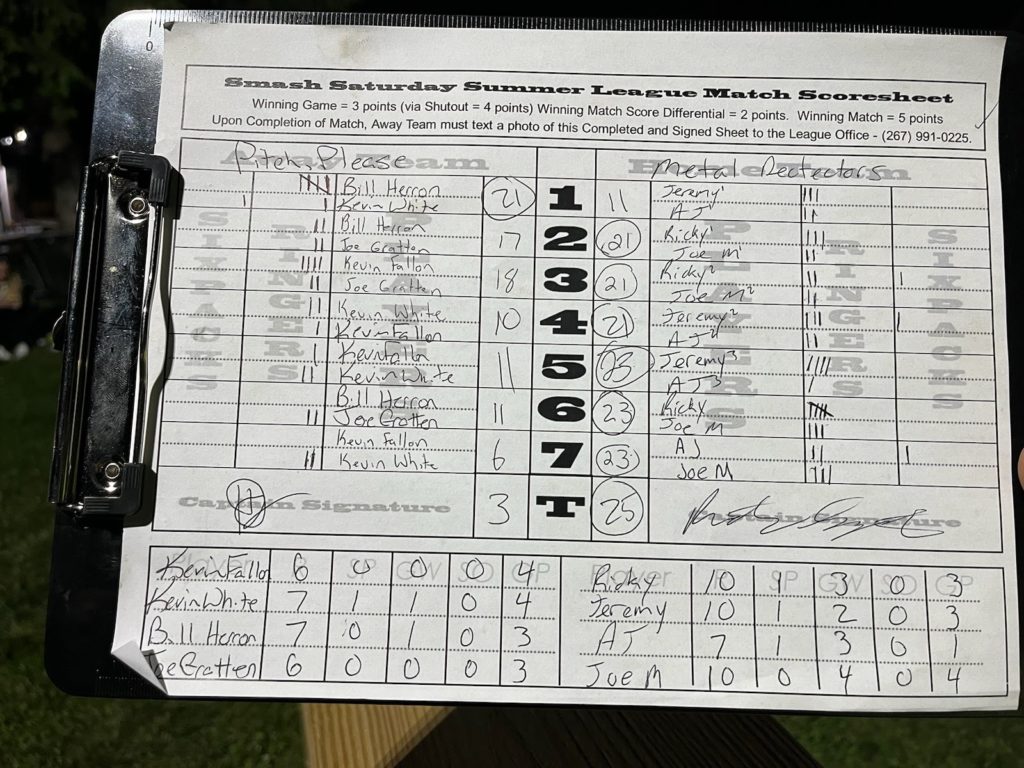 Smash Saturday Summer League Match Scoresheet
Winning Game = 3 points (via Shutout = 4 points) Winning Match Score Differential = 2 points. Winning Match = 5 points
Upon Completion of Match, Away Team must text a photo of this Completed and Signed Sheet to the League Office - (267) 991-0225.
Pitch, Please Metal Dectectors
Bill Herron 21 1 11 Jeremy1
Kevin White AJ1
Bill Herron 17 2 21 Ricky
Joe Gratten Joe M
Kevin Fallon 18 3 21 Ricky2
Joe Gratten Joe M2
Kevin White 10 4 21 Jeremy2
Kevin Fallon AJ
Kevin Fallon 11 5 23 Jeremy3
Kevin White AJ3
Bill Herron 11 6 23 Ricky
Joe Gratten Joe M
Kevin Fallon 6 7 23 AJ
Kevin White Joe M
Captain Signature 3 T 25 Captain Signature
Kevin Fallon 6 0 0 0 4 Ricky 10 1 3 0 3
Kevin White 7 1 1 0 4 Jeremy 10 1 2 0 3
Bill Herron 7 0 1 0 3 AJ 7 1 3 0 1
Joe Gratten 6 0 0 0 3 Joe M 10 0 4 0 4